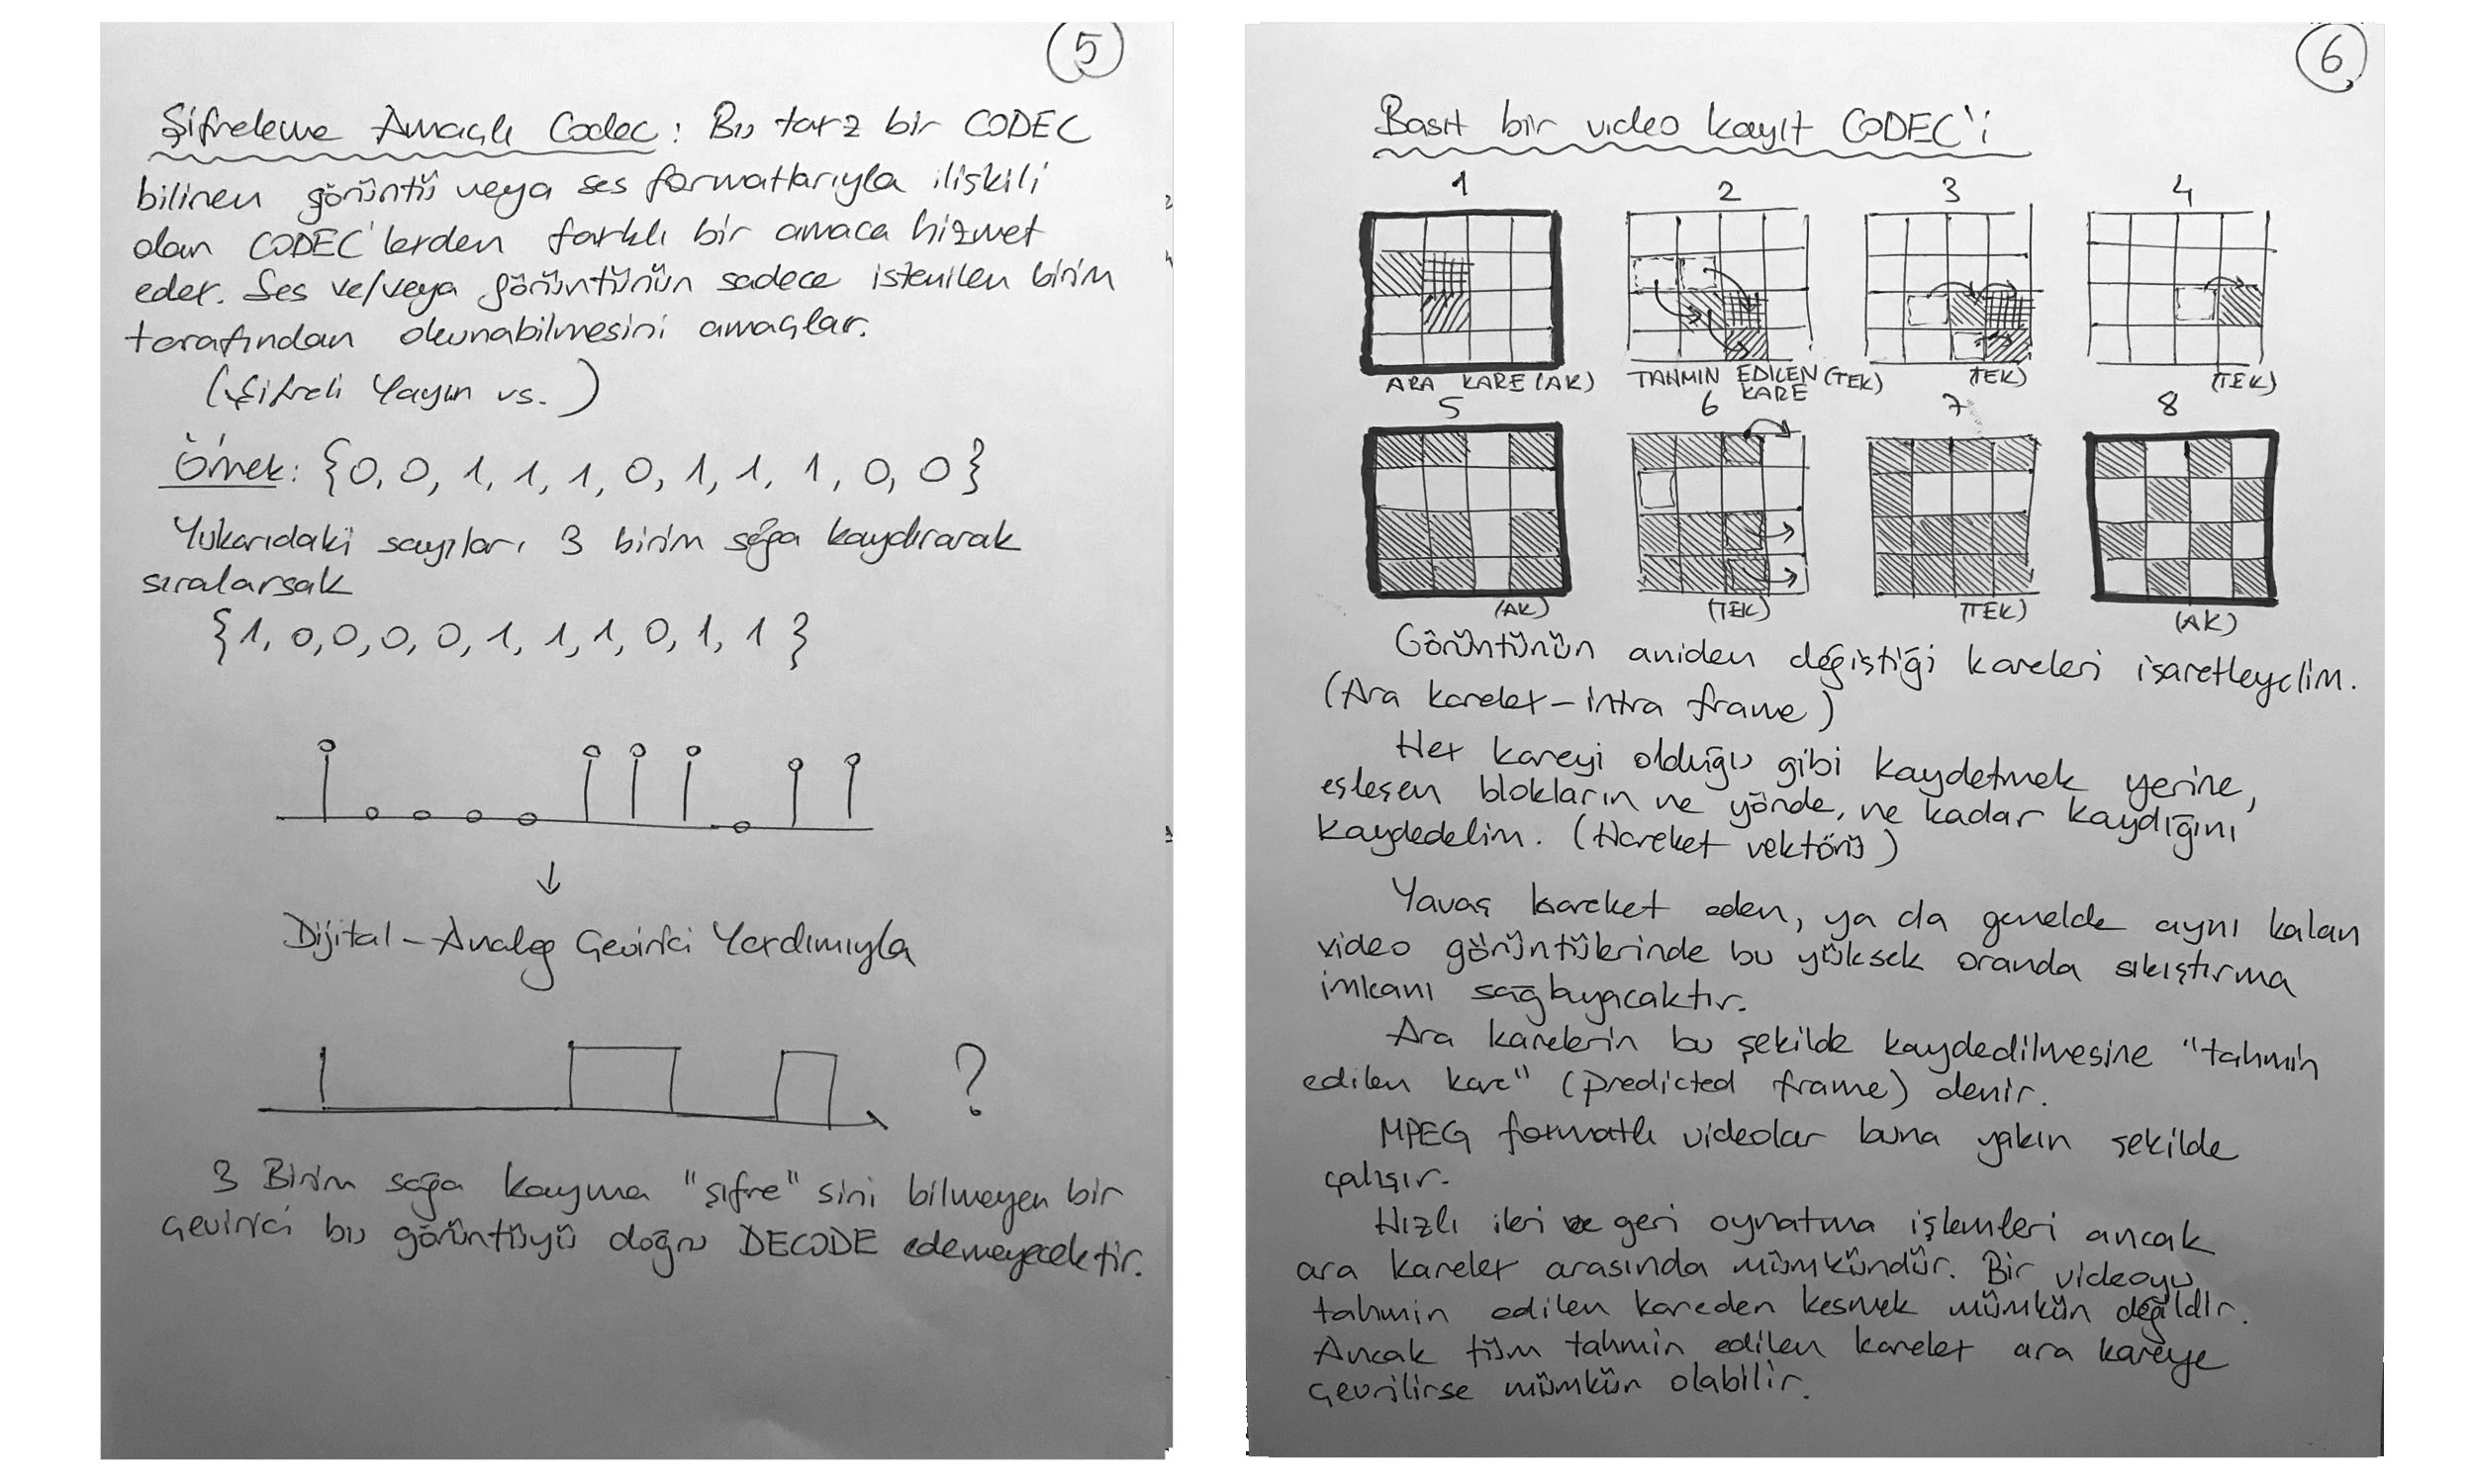 5
Şifreleme Amaçlı Codec: Bu tarz bir CODEC
bilinen görüntü veya ses formatlarıyla ilişkili
olan CODEC'lerden farklı bir amaca hizmet
eder. Ses ve/veya görüntünün sadece istenilen birim
tarafından okunabilmesini amaçlar.
(Şifreli Yayın vs.)
Örnek: {0, 0, 1, 1, 1, 0, 1, 1, 1, 0, 0}
Yukarıdaki sayıları 3 birim sağa kaydırarak
sıralarsak
{1, 0, 0, 0, 0, 1, 1, 1, 0, 1, 1}
Dijital-Analog Çevirici Yardımıyla
?
3 Birim sağa kayma "şifre" sini bilmeyen bir
çevirici bu görüntüyü doğru DECODE edemeyecektir.
6
Basit bir video kayıt CODEC'i
1 2 3 4
ARA KARE (AK) TAHMIN EDILEN (TEK) (TEK) (TEK)
KARE
5 6 7 8
(AK) (TEK) (TEK) (AK)
Görüntünün aniden değiştiği kareleri işaretleyelim.
(Ara kareler - intra frame)
Her kareyi olduğu gibi kaydetmek yerine,
eşleşen blokların ne yönde, ne kadar kaydığını
kaydedelim. (Hareket vektörü)
Yavaş hareket eden, ya da genelde aynı kalan
video görüntülerinde bu yüksek oranda sıkıştırma
imkanı sağlayacaktır.
Ara karelerin bu şekilde kaydedilmesine "tahmin
edilen kare" (predicted frame) denir.
MPEG formatlı videolar buna yakın şekilde
çalışır.
Hızlı ileri ve geri oynatma işlemleri ancak
ara kareler arasında mümkündür. Bir videoyu
tahmin edilen kareden kesmek mümkün değildir.
Ancak tüm tahmin edilen kareler ara kareye
çevrilirse mümkün olabilir.